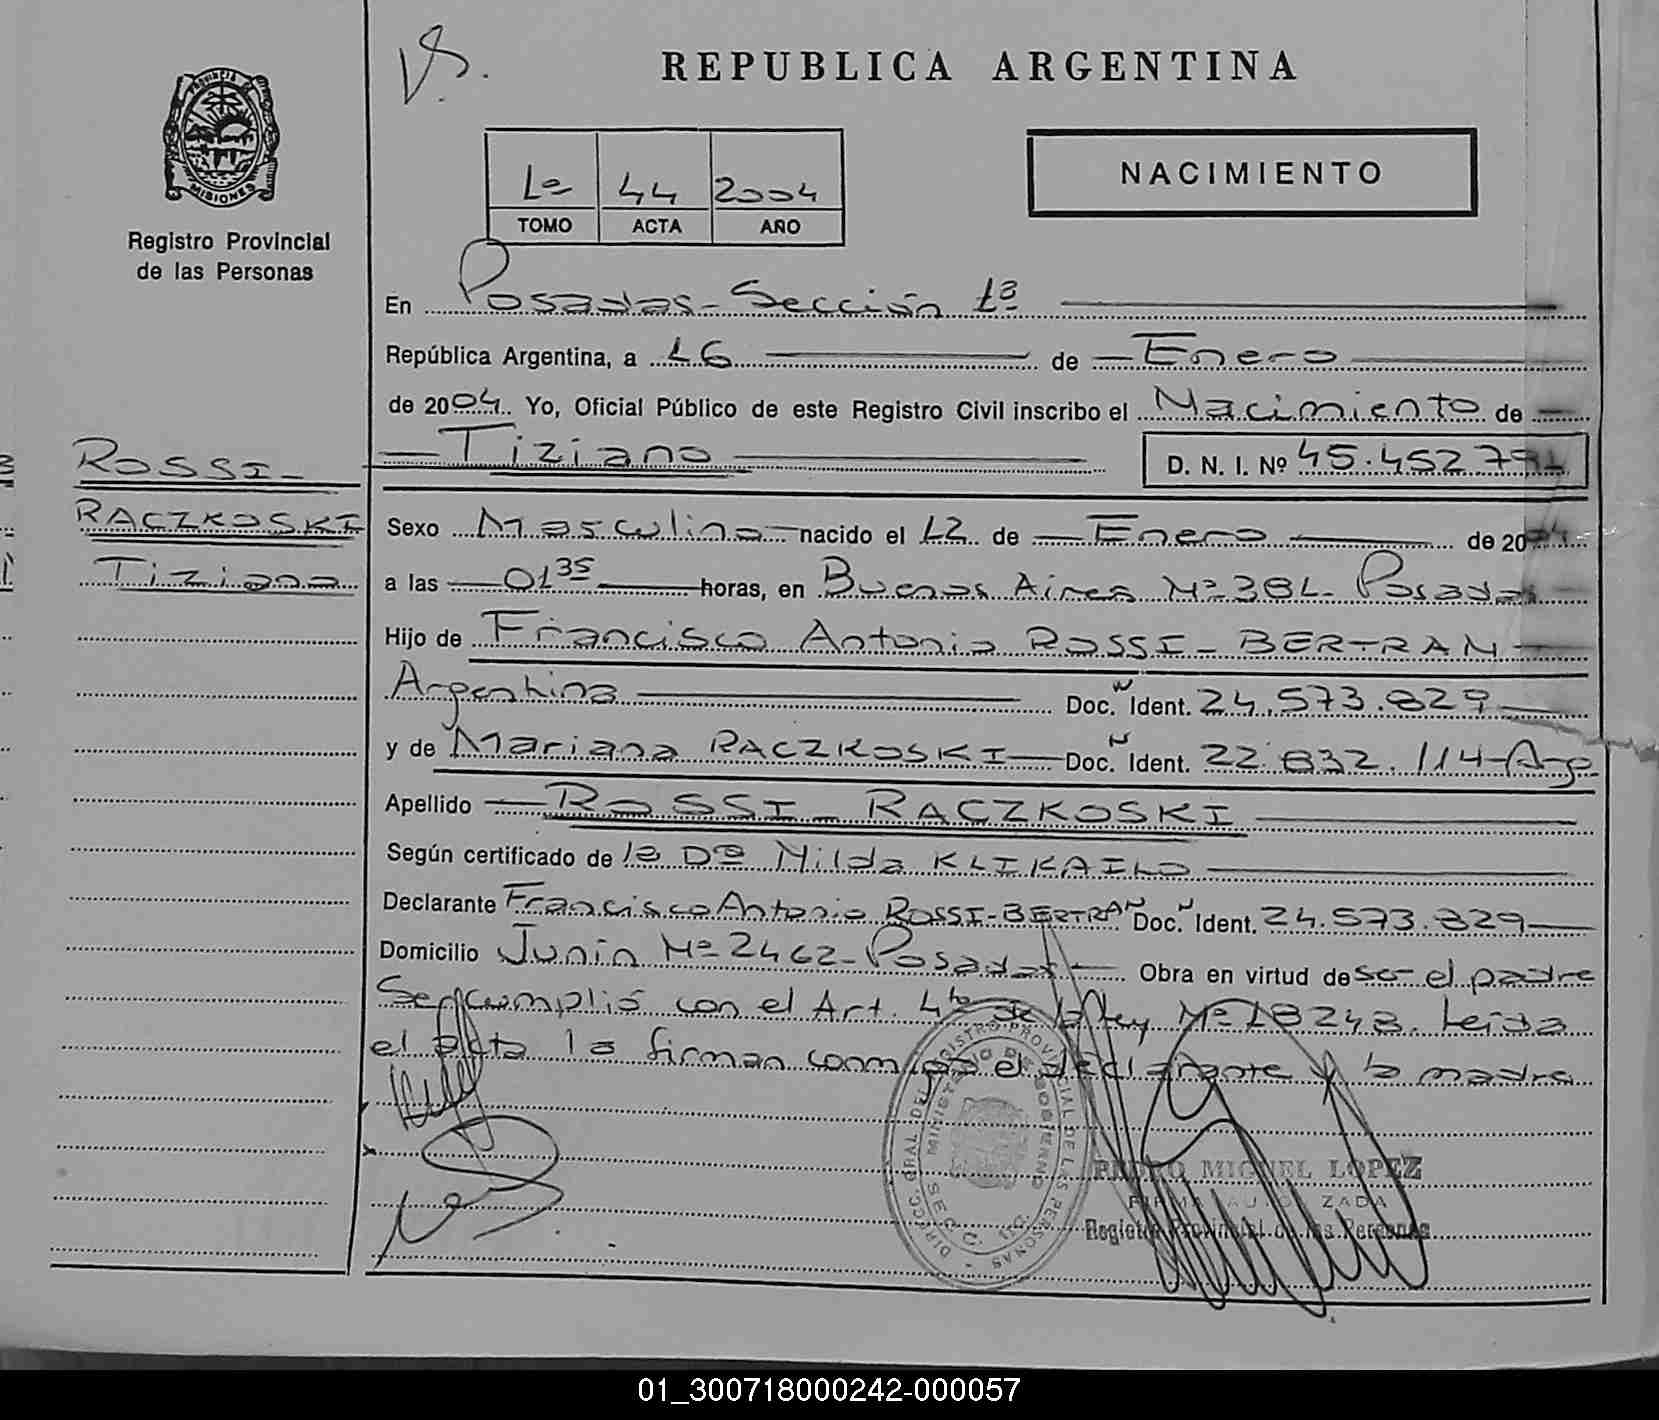 V.S.
REPUBLICA ARGENTINA
PROVINCIA DE
MISIONES
Registro Provincial
de las Personas
1º 44 2004
TOMO ACTA AÑO
NACIMIENTO
En Posadas - Sección 1ª
República Argentina, a 16 de Enero
de 2004. Yo, Oficial Público de este Registro Civil inscribo el Nacimiento de
Tiziano D. N. I. Nº 45.452.791
ROSSI-
RACZKOSKI
Tiziano
Sexo Masculino nacido el 12 de Enero de 2004
a las 01 35 horas, en Buenos Aires Nº 381- Posadas
Hijo de Francisco Antonio ROSSI - BERTRAN
Argentina Doc. N Ident. 24.573.829
y de Mariana RACZKOSKI Doc. N Ident. 22.832.114-Arg
Apellido ROSSI - RACZKOSKI
Según certificado de la Dª Nilda KLIKAILO
Declarante Francisco Antonio ROSSI-BERTRAN Doc. N Ident. 24.573.829
Domicilio Junin Nº 2462- Posadas Obra en virtud de ser el padre
Se cumplió con el Art. 4to de la ley Nº 18248. Leida
el acta la firman conmigo el declarante y la madre
DIRECC. GRAL. DEL REGISTRO PROVINCIAL DE LAS PERSONAS
MINISTERIO DE GOBIERNO
PEDRO MIGUEL LOPEZ
FIRMA AUTORIZADA
Registro Provincial de las Personas
01_300718000242-000057